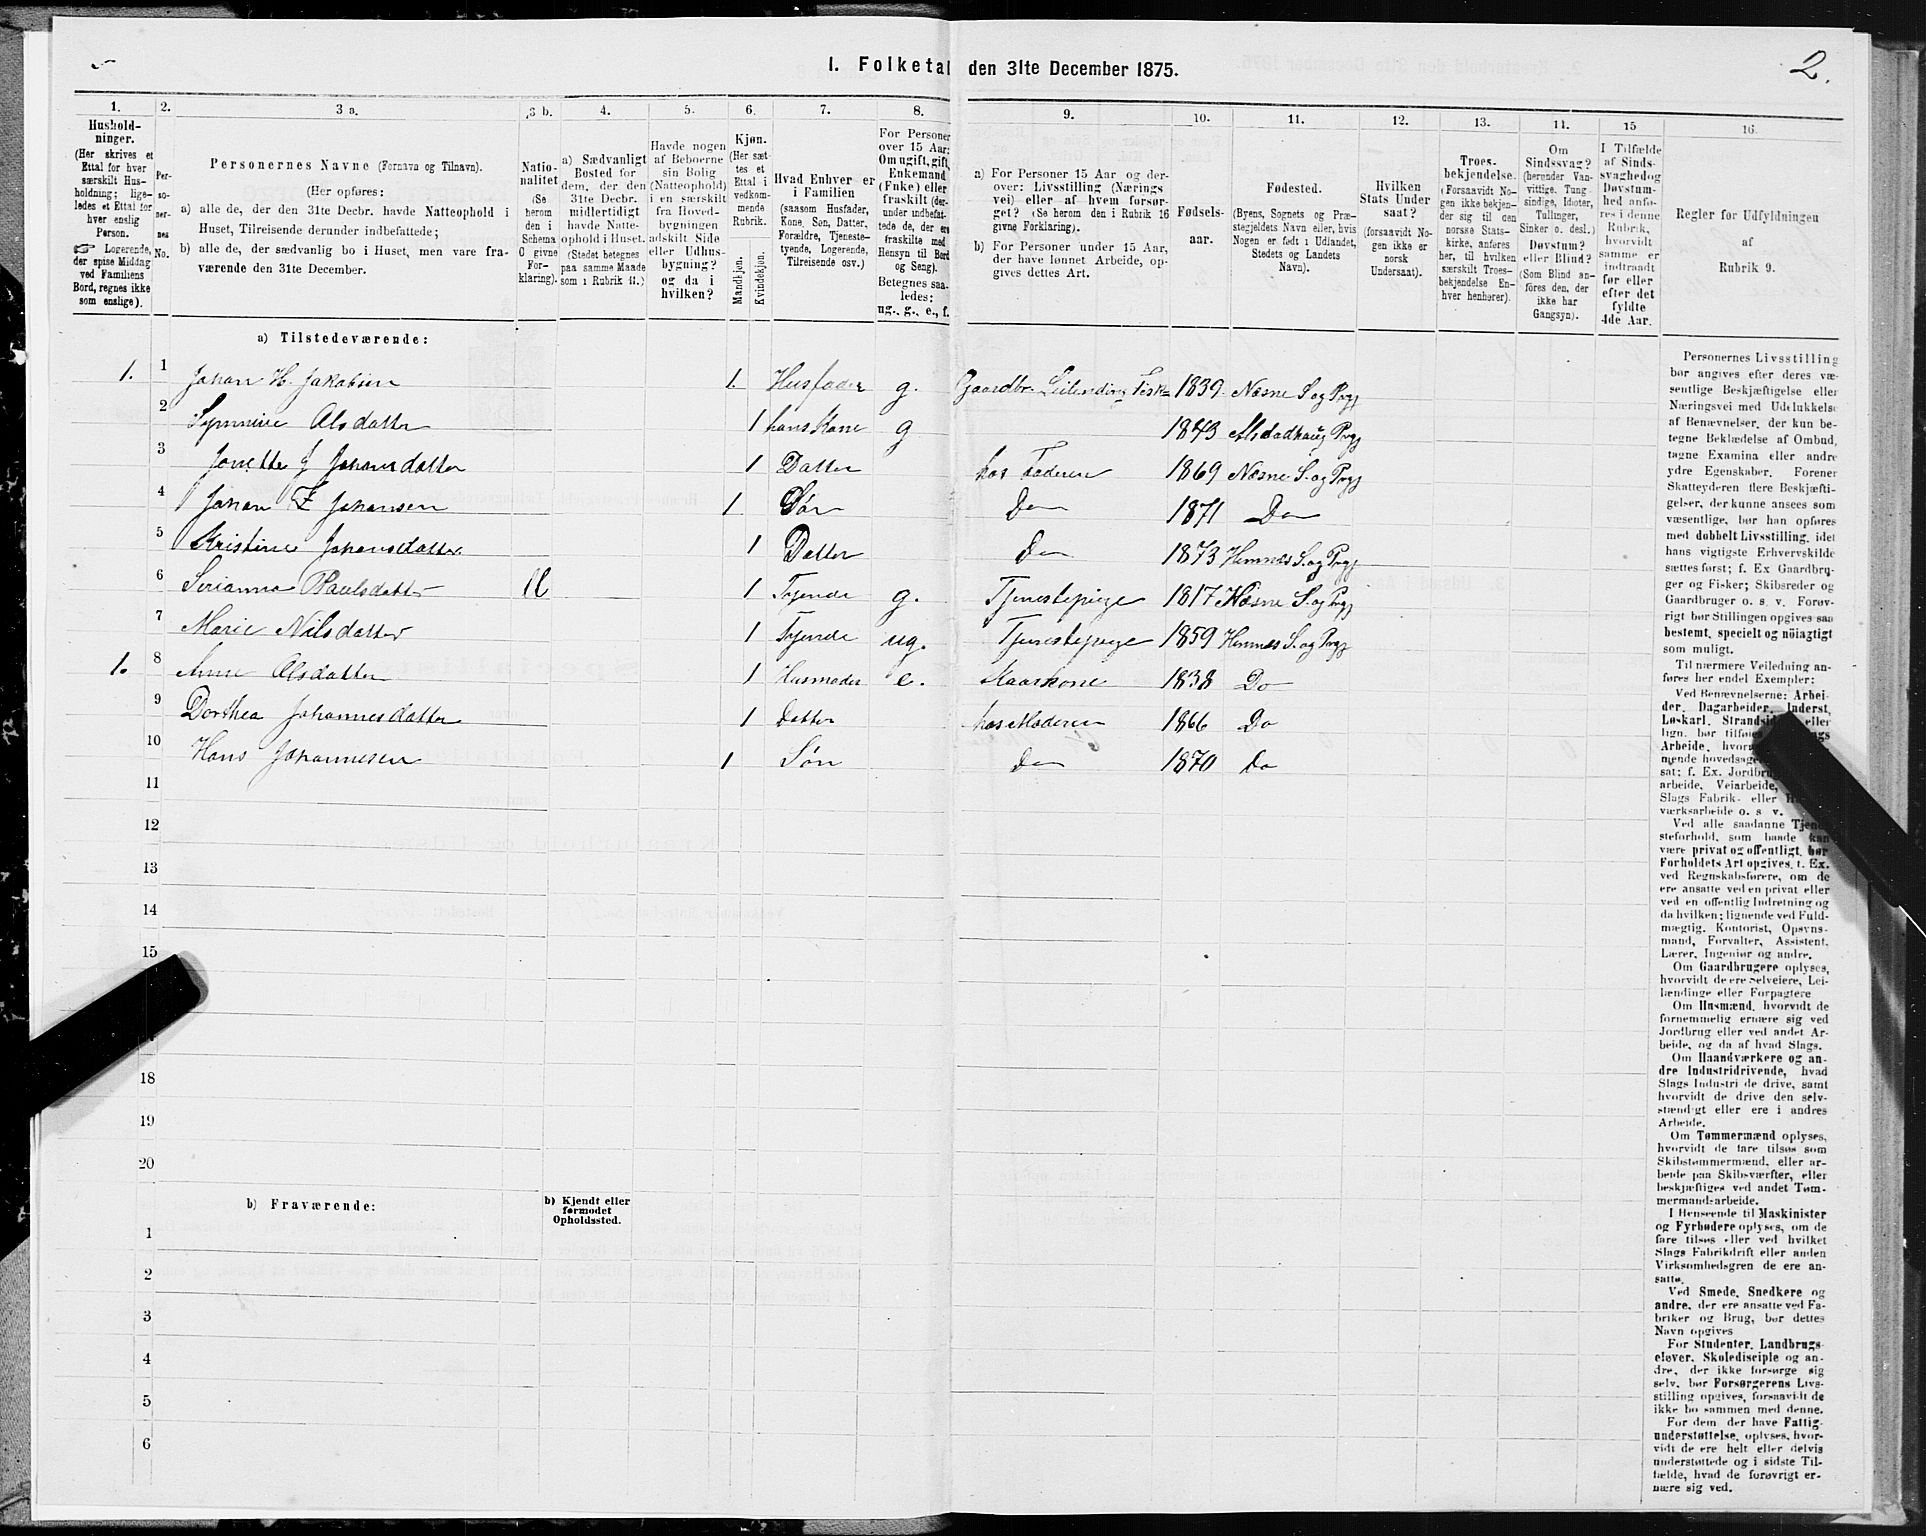 1. Folketal den 31te December 1875.
2.
1.
2.
3 a.
3 b.
4.
5.
6.
7.
8.
9.
10.
11.
12.
13.
14.
15
16.
Hushold-
ninger.
(Her skrives et
Ettal for hver
særskilt Hus-
holdning; lige-
ledes et Ettal for
hver enslig
Person.
☞ Logerende,
der spise Middag
ved Familiens
Bord, regnes ikke
som enslige).
Per-
so-
ner-
nes
No.
Personernes Navne (Fornavn og Tilnavn).
(Her opføres:
a) alle de, der den 31te Decbr. havde Natteophold i
Huset, Tilreisende derunder indbefattede;
b) alle de, der sædvanlig bo i Huset, men vare fra-
værende den 31te December.
Natio-
nalitet
(Se
herom
den i
Schema
C givne
For-
klaring).
a) Sædvanligt
Bosted for
dem, der den
31te Decbr.
midlertidigt
havde Natte-
ophold i Huset.
(Stedet betegnes
paa samme Maade
som i Rubrik 11.)
Havde nogen
af Beboerne
sin Bolig
(Natteophold)
i en særskilt
fra Hoved-
bygningen
adskilt Side
eller Udhus-
bygning?
og da i
hvilken?
Kjøn.
(Her sæt-
tes et
Ettal i
vedkom-
mende
Rubrik.
Mandkjøn.
Kvindekjøn.
Hvad Enhver er
i Familien
(saasom Husfader,
Kone, Søn, Datter,
Forældre, Tjeneste-
tyende, Logerende,
Tilreisende osv.)
For Personer
over 15 Aar:
Om ugift, gift,
Enkemand
(Enke) eller
fraskilt (der-
under indbefat-
tede de, der ere
fraskilte med
Hensyn til Bord
og Seng).
Betegnes saa-
ledes:
ug., g., e., f.
a) For Personer 15 Aar og der-
over: Livsstilling (Nærings
vei) eller af hvem forsør-
get? (Se herom den i Rubrik 16
givne Forklaring).
b) For Personer under 15 Aar,
der have lønnet Arbeide, op-
gives dettes Art.
Fødsels-
aar.
Fødested.
(Byens, Sognets og Præ-
stegjeldets Navn eller, hvis
Nogen er født i Udlandet,
Stedets og Landets
Navn).
Hvilken
Stats Under
saat?
(forsaavidt No-
gen ikke er
norsk
Undersaat).
Troes-
bekjendelse.
(Forsaavidt No-
gen ikke bekjen-
der sig til den
norske Stats-
kirke, anføres
her, til hvilken
særskilt Troes-
bekjendelse En-
hver henhører).
Om
Sindssvag?
(herunder Van-
vittige, Tung-
sindige, Idioter,
Tullinger,
Sinker o. desl.)
Døvstum?
eller Blind?
(Som Blind an-
føres den, der
ikke har
Gangsyn).
I Tilfælde
af Sinds-
svaghed og
Døvstum-
hed anfø-
res i denne
Rubrik,
hvorvidt
samme er
indtraadt
før eller
efter det
fyldte
4de Aar.
Regler for Udfyldningen
af
Rubrik 9.
a) Tilstedeværende:
1. 1 Johan H. Jakobsen 1. Husfader g. Gaardbr. Leilending Fisk= 1839. Næsne S. og Prgj
2 Synneve Olsdatter 1 hans Kone g 1843 Alsdadhaug Prgj
3 Jonette J Johansdatter 1 Datter hos Faderen 1869 Næsne S. og Prgj
4 Johan Z Johansen 1. Søn Do 1871 Do
5 Kristine Johansdatter 1 Datter Do 1873 Hemnæs S. og Prgj
6 Serianna Paulsdatter 1 Tyende g. Tjenestepige 1817 Næsne S. og Prgj
7 Marie Nilsdatter 1 Tyende ug. Tjenestepige 1859 Hemnæs S. og Prgj
1. 8 Anne Olsdatter 1 Husmoder e. Kaarkone 1838 Do
9 Dorthea Johannesdatter 1 Datter hos Moderen 1866 Do
10 Hans Johannesen 1 Søn Do 1870 Do
11
12
13
14
15
18
19
20
b) Fraværende:
b) Kjendt eller
formodet
Opholdssted.
1
2
3
4
5
6
Personernes Livsstilling
bør angives efter deres væ-
sentlige Beskjæftigelse eller
Næringsvei med Udelukkelse
af Benævnelser, der kun be-
tegne Beklædelse af Ombud,
tagne Examina eller andre
ydre Egenskaber. Forener
Skatteyderen flere Beskjæfti-
gelser, der kunne ansees som
væsentlige, bør han opføres
med dobbelt Livsstilling, idet
hans vigtigste Erhvervskilde
sættes først; f. Ex Gaardbru-
ger og Fisker; Skibsreder og
Gaardbruger o. s. v. Forøv-
rigt bør Stillingen opgives saa
bestemt, specielt og nöiagtigt
som muligt.
Til nærmere Veiledning an-
føres her endel Exempler:
Ved Benævnelserne: Arbei-
der, Dagarbeider, Inderst,
Løskarl, Strandsid eller
lign. bør tilføies
Arbeide, hvor
nende hovedsage
sat; f. Ex. Jordbru
arbeide, Veiarbeide,
Slags Fabrik- eller
værksarbeide o. s v.
Ved alle saadanne Tjene-
steforhold, som baade kan
være privat og offentligt, bør
Forholdets Art opgives, t. Ex.
ved Regnskabsførere, om de
ere ansatte ved en privat eller
ved en offentlig Indretning og
da hvilken; lignende ved Fuld-
mægtig, Kontorist, Opsyns-
mand, Forvalter, Assistent,
Lærer, Ingeniør og andre.
Om Gaardbrugere oplyses,
hvorvidt de ere Selveiere, Lei-
lændinge eller Forpagtere
Om Husmænd, hvorvidt de
fornemmelig ernære sig ved
Jordbrug eller ved andet Ar-
beide, og da af hvad Slags.
Om Haandværkere og an-
dre Industridrivende, hvad
Slags Industri de drive, samt
hvorvidt de drive den selv-
stændigt eller ere i andres
Arbeide.
Om Tømmermænd oplyses,
hvorvidt de fare tilsøs som
Skibstømmermænd, eller ar-
beide paa Skibsværfter, eller
beskjæftiges ved andet Tøm-
mermandsarbeide.
I Henseende til Maskinister
og Fyrbødere oplyses, om de
fare tilsøs eller ved hvilket
Slags Fabrikdrift eller anden
Virksomhedsgren de ere an-
satte.
Ved Smede, Snedkere og
andre, der ere ansatte ved Fa-
briker og Brug, bør dettes
Navn opgives
For Studenter, Landbrugs-
eløver, Skoledisciple og an-
dre, der ikke forsørge sig
selv, bør Forsørgerens Livs-
stilling opgives, forsaavidt de
ikke bo sammen med denne.
For dem der have Fattig-
understøttelse, oplyses, hvor-
vidt de ere helt eller delvis
understøttede og i sidste Til-
fælde, hvad de forøvrigt er-
nære sig ved.